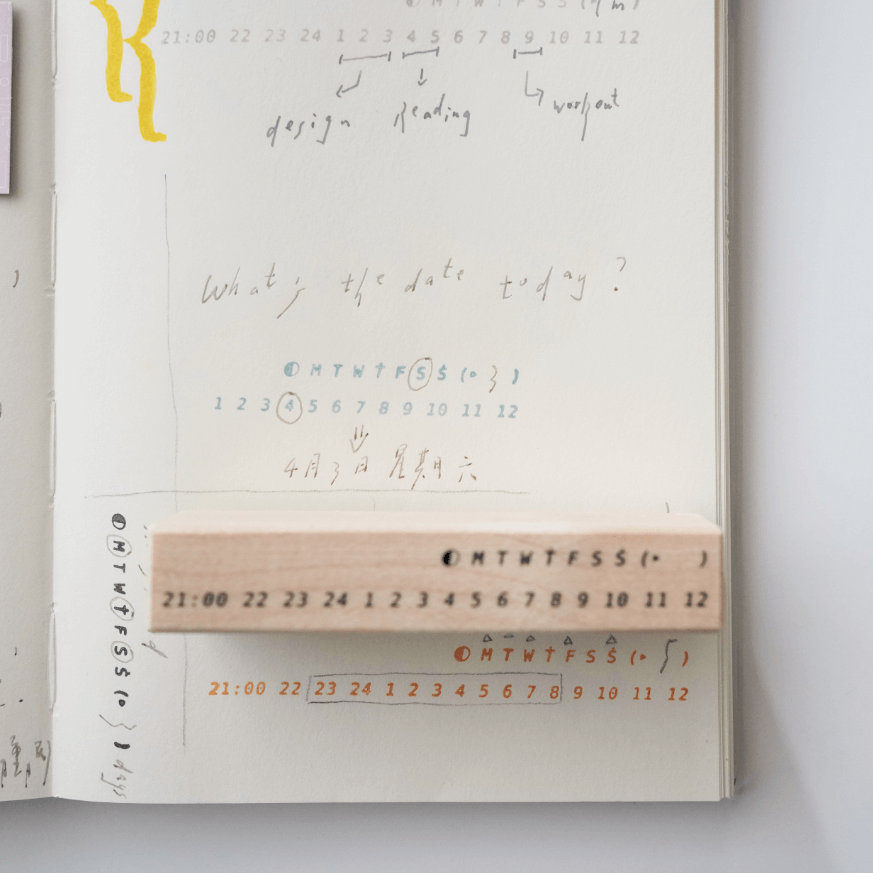 M T W Ṫ F S Ṡ (
21:00 22 23 24 1 2 3 4 5 6 7 8 9 10 11 12
design reading workout
What's the date today?
M T W Ṫ F S Ṡ (• 3 )
1 2 3 4 5 6 7 8 9 10 11 12
4月3日 星期六
M T W Ṫ F S Ṡ (• )
21:00 22 23 24 1 2 3 4 5 6 7 8 9 10 11 12
M T W Ṫ F S Ṡ (• 5 )
21:00 22 23 24 1 2 3 4 5 6 7 8 9 10 11 12
M T W Ṫ F S Ṡ (• 3 ) days